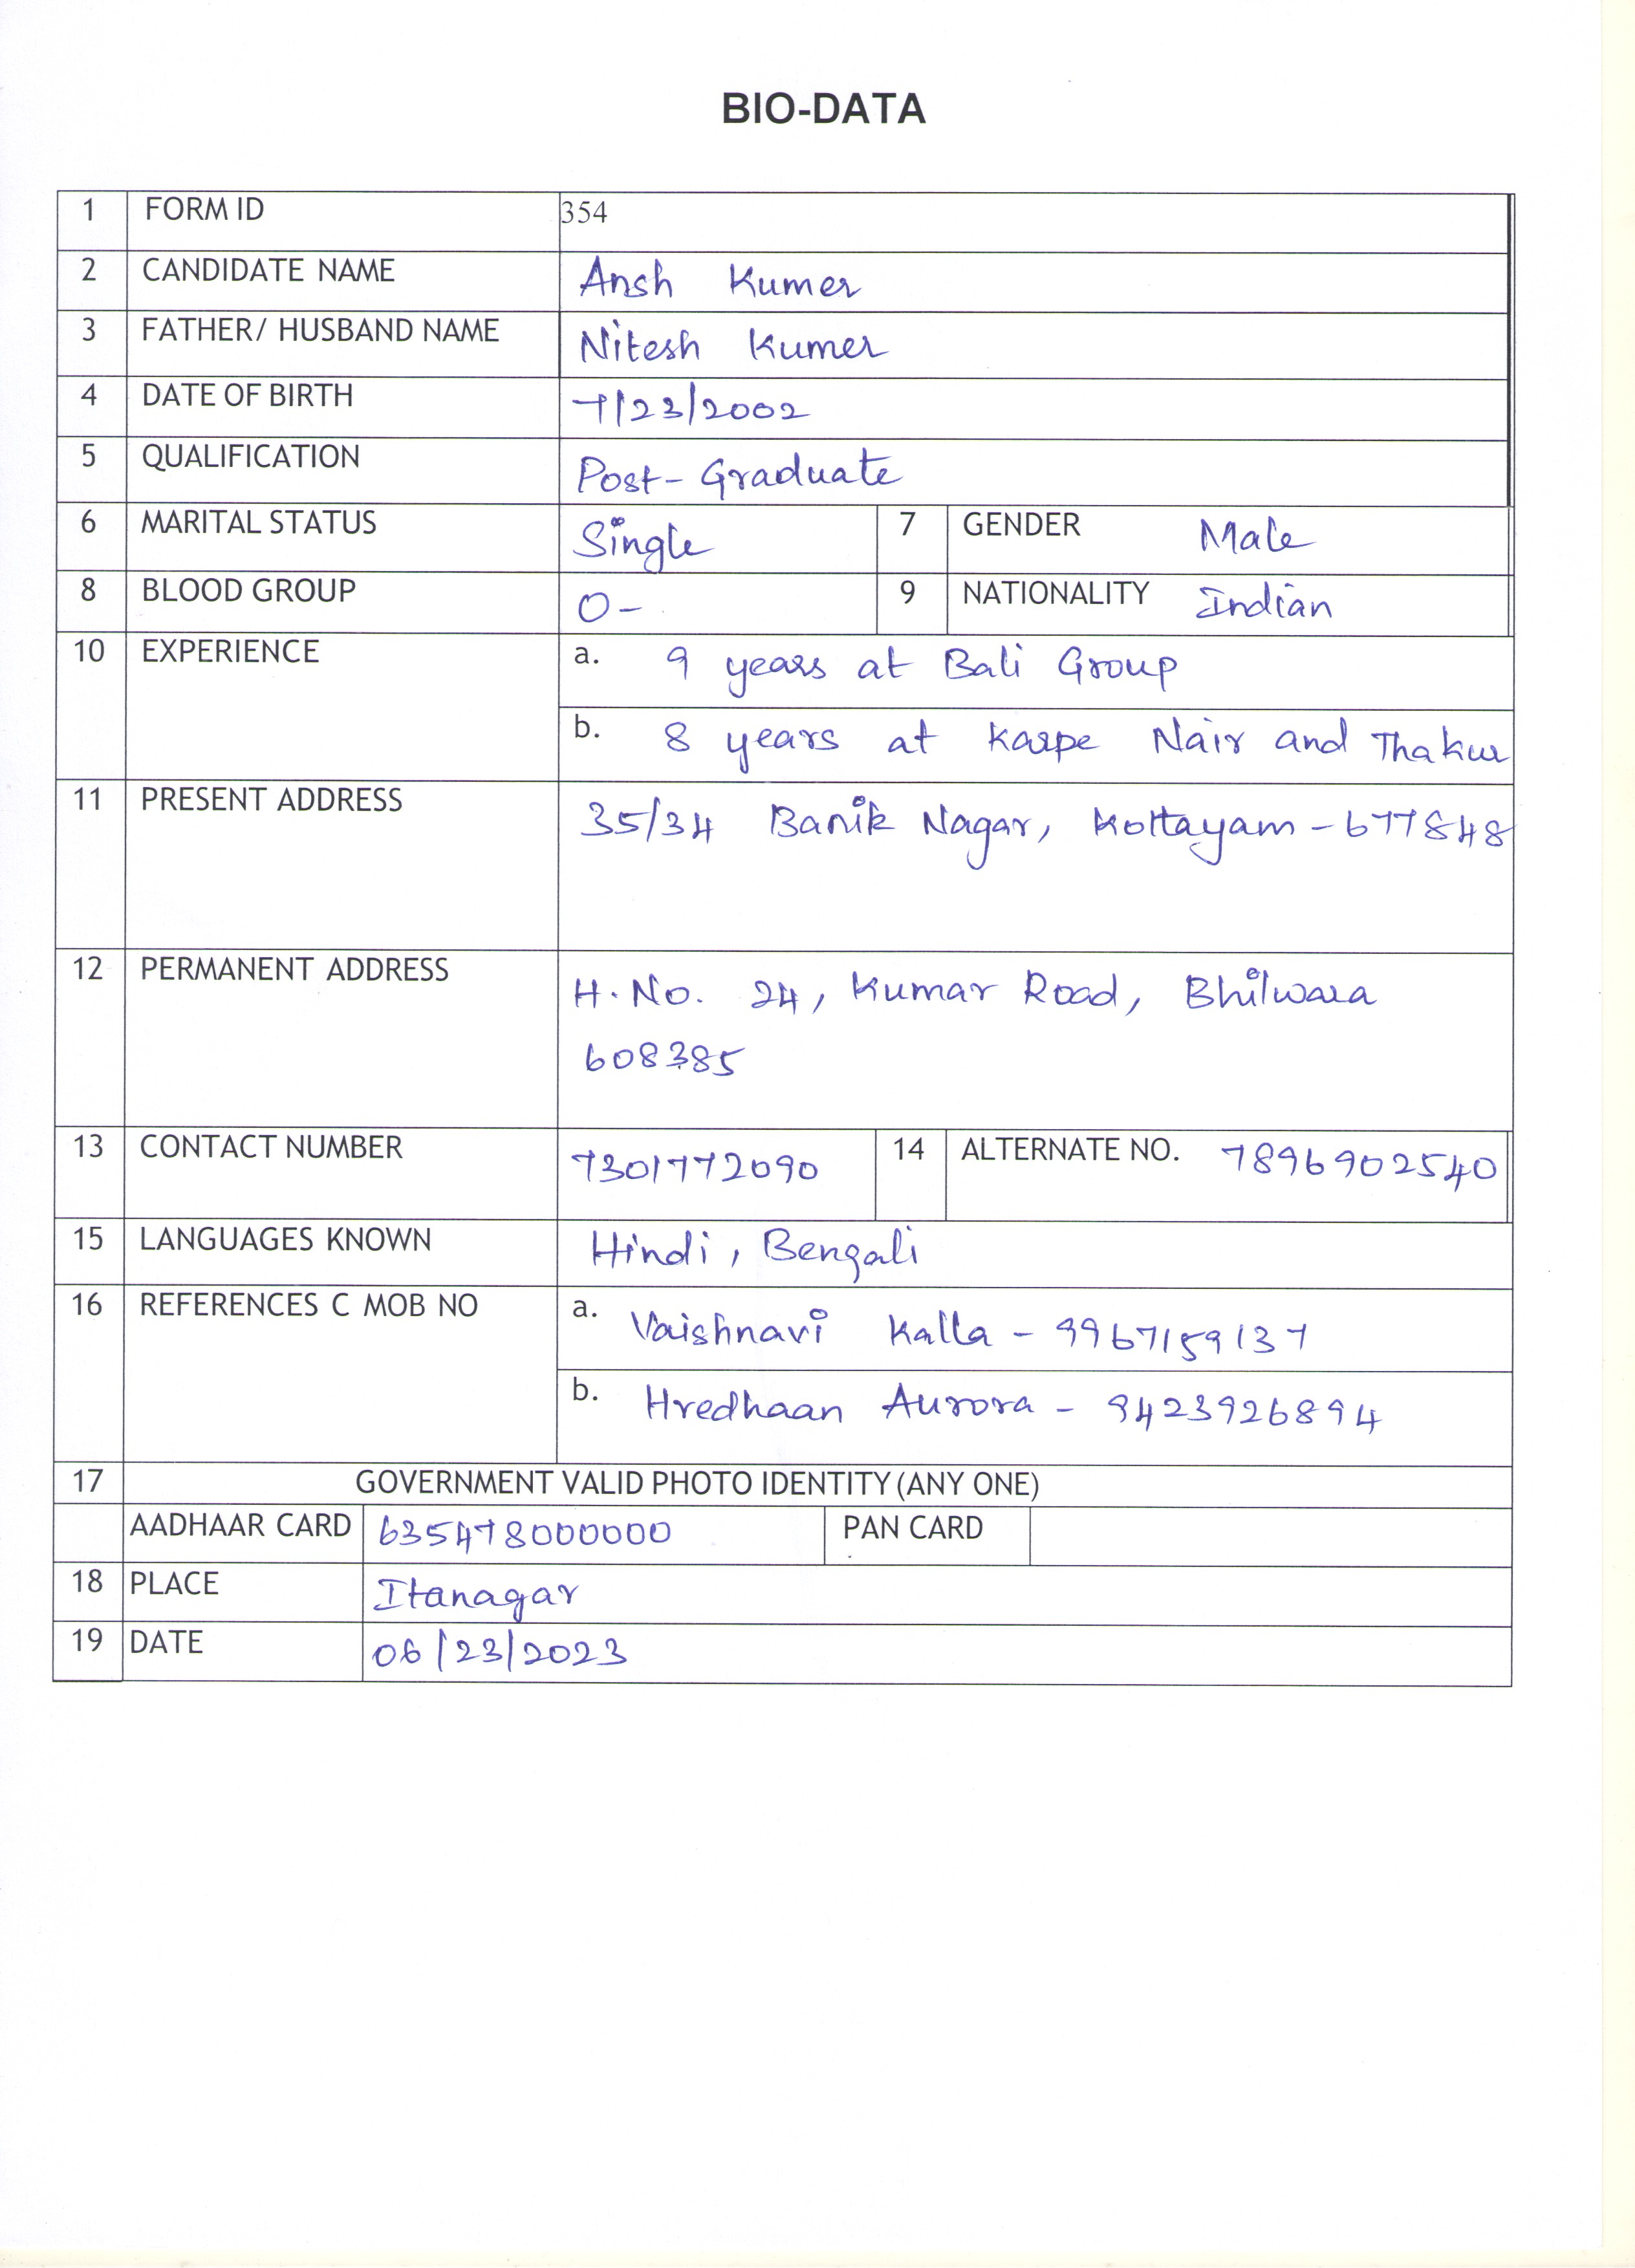 BIO-DATA
1 FORM ID 354
2 CANDIDATE NAME Ansh Kumer
3 FATHER/ HUSBAND NAME Nitesh Kumer
4 DATE OF BIRTH 7/23/2002
5 QUALIFICATION Post-Graduate
6 MARITAL STATUS Single 7 GENDER Male
8 BLOOD GROUP O- 9 NATIONALITY Indian
10 EXPERIENCE a. 9 years at Bali Group
b. 8 years at Karpe Nair and Thakur
11 PRESENT ADDRESS 35/34 Banik Nagar, Kottayam - 677848
12 PERMANENT ADDRESS H.No. 24, Kumar Road, Bhilwara
608385
13 CONTACT NUMBER 7301772090 14 ALTERNATE NO. 7896902540
15 LANGUAGES KNOWN Hindi, Bengali
16 REFERENCES C MOB NO a. Vaishnavi Kalla - 9967159137
b. Hredhaan Aurora - 9423926894
17 GOVERNMENT VALID PHOTO IDENTITY (ANY ONE)
AADHAAR CARD 635478000000 PAN CARD
18 PLACE Itanagar
19 DATE 06/23/2023